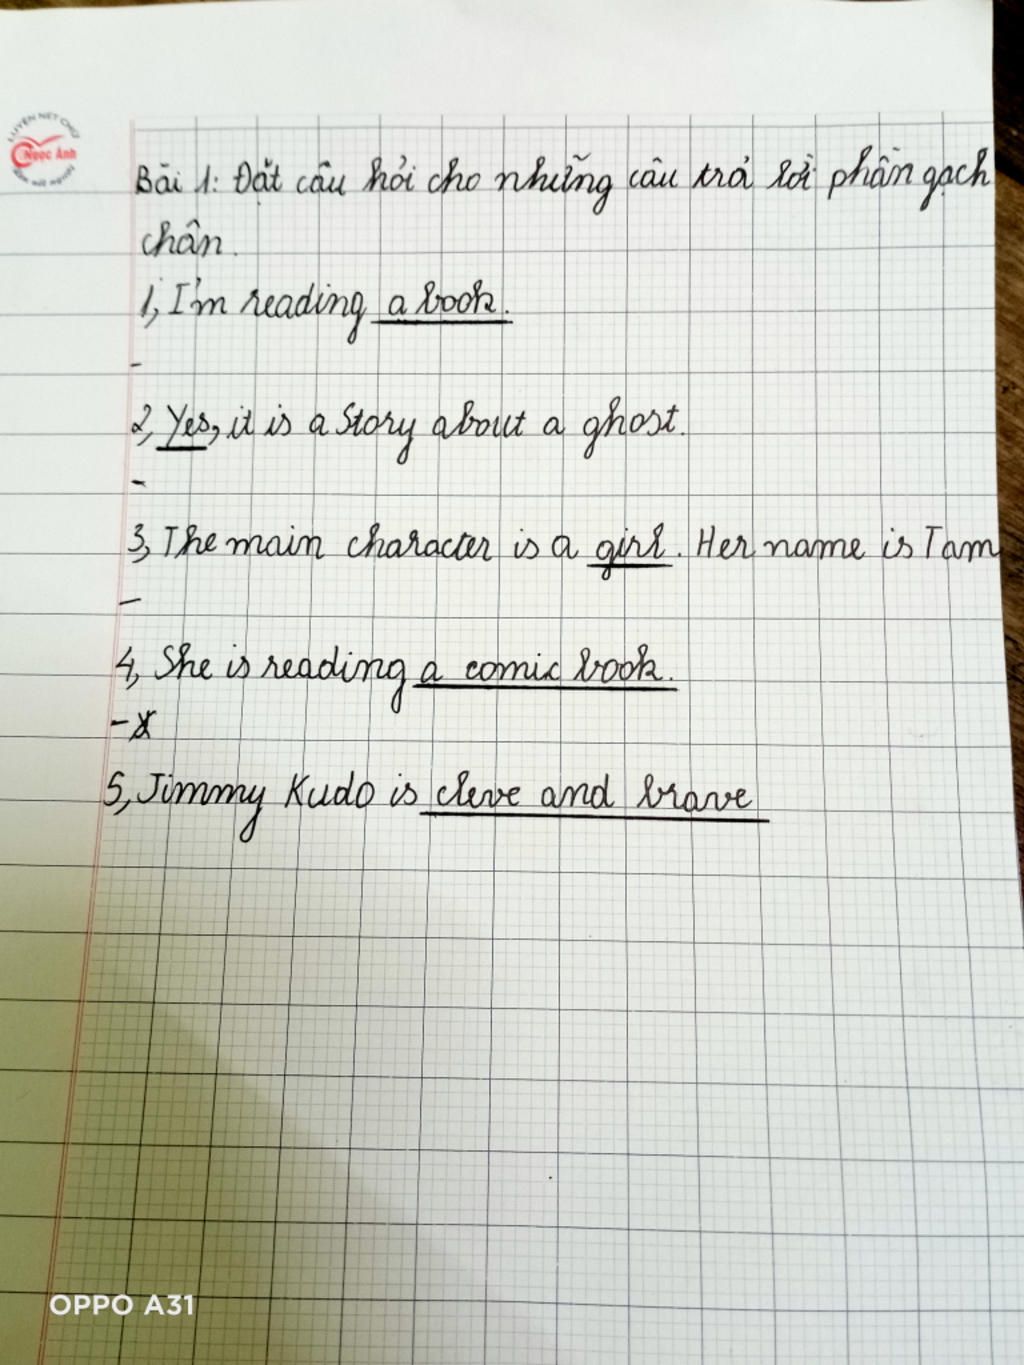 LUYỆN NÉT CHỮ
Ngọc Ánh
Bài 1: Đặt câu hỏi cho những câu trả lời phần gạch
chân.
1, I'm reading a book.
-
2, Yes, it is a story about a ghost.
-
3, The main character is a girl. Her name is Tam
-
4, She is reading a comic book.
-
5, Jimmy Kudo is cleve and brave
OPPO A31